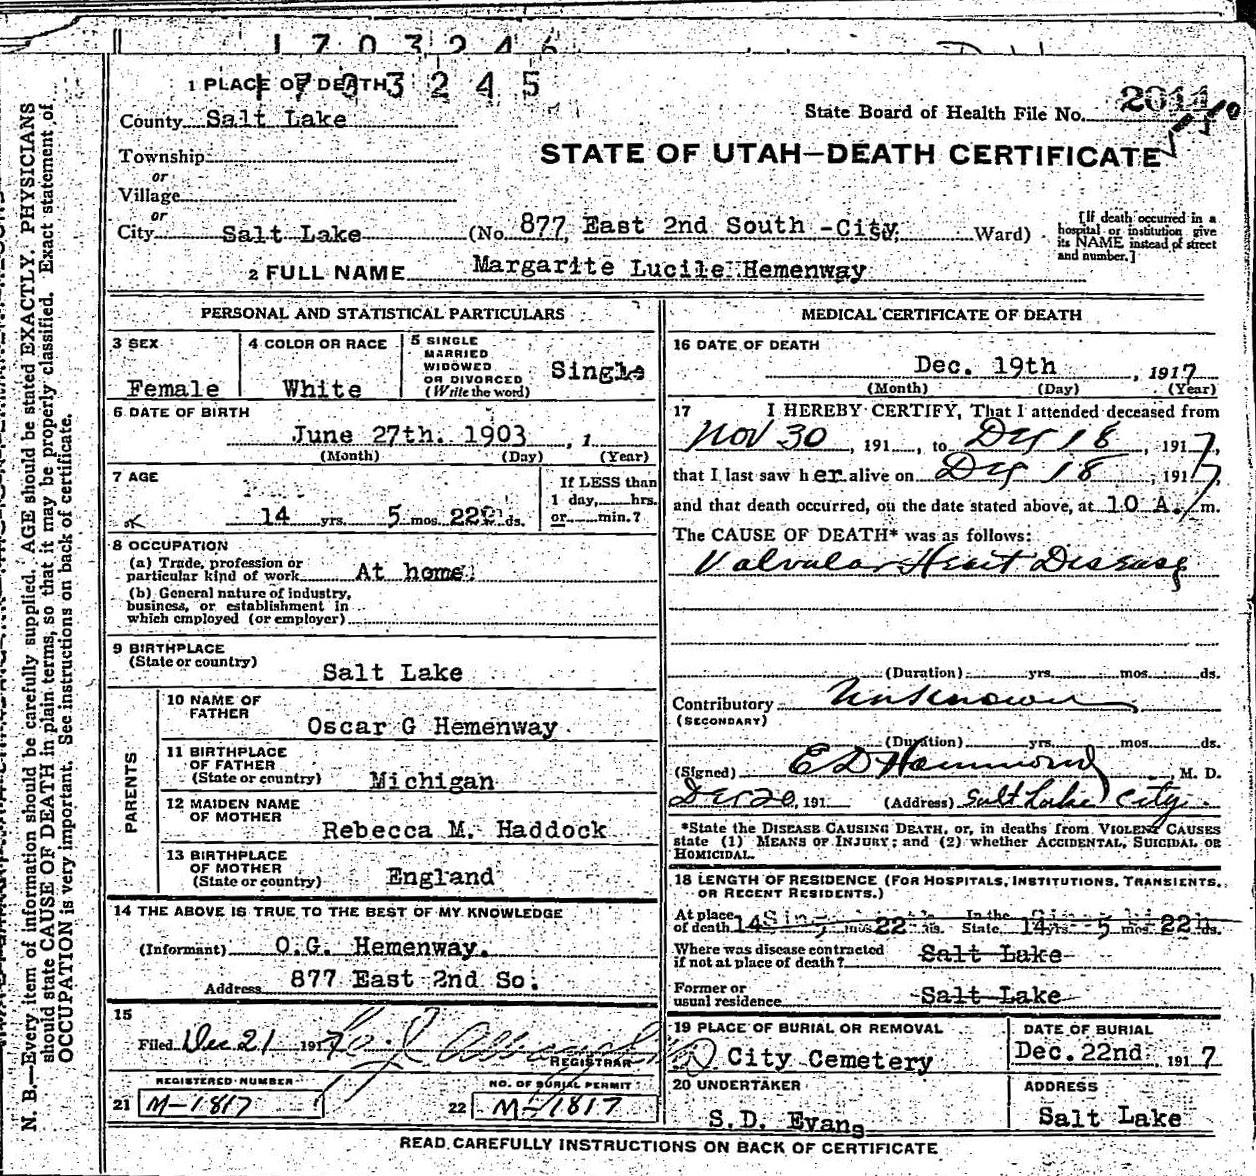 1703246
1 PLACE OF DEATH
1703245
County Salt Lake
State Board of Health File No. 2014
Township
or
STATE OF UTAH—DEATH CERTIFICATE
Village
or
City Salt Lake (No. 877, East 2nd South -City. Ward)
[If death occurred in a
hospital or institution give
its NAME instead of street
and number.]
2 FULL NAME Margarite Lucile Hemenway
PERSONAL AND STATISTICAL PARTICULARS
3 SEX
Female
4 COLOR OR RACE
White
5 SINGLE
MARRIED
WIDOWED
OR DIVORCED
(Write the word)
Single
6 DATE OF BIRTH
June 27th. 1903, 1
(Month) (Day) (Year)
7 AGE
14 yrs. 5 mos. 22 ds.
If LESS than
1 day, hrs.
or min.?
8 OCCUPATION
(a) Trade, profession or
particular kind of work At home.
(b) General nature of industry,
business, or establishment in
which employed (or employer)
9 BIRTHPLACE
(State or country)
Salt Lake
PARENTS
10 NAME OF
FATHER
Oscar G Hemenway.
11 BIRTHPLACE
OF FATHER
(State or country) Michigan
12 MAIDEN NAME
OF MOTHER
Rebecca M. Haddock
13 BIRTHPLACE
OF MOTHER
(State or country) England
14 THE ABOVE IS TRUE TO THE BEST OF MY KNOWLEDGE
(Informant) O.G. Hemenway.
Address 877 East 2nd So.
15
Filed Dec 21 1917
REGISTRAR
REGISTERED NUMBER
21 M-1817
NO. OF BURIAL PERMIT
22 M-1817
MEDICAL CERTIFICATE OF DEATH
16 DATE OF DEATH
Dec. 19th, 1917
(Month) (Day) (Year)
17 I HEREBY CERTIFY, That I attended deceased from
Nov 30, 191, to Dec 18, 1917,
that I last saw her alive on Dec 18, 1917,
and that death occurred, on the date stated above, at 10 A. m.
The CAUSE OF DEATH* was as follows:
Valvular Heart Disease
(Duration) yrs. mos. ds.
Contributory Unknown
(SECONDARY)
(Duration) yrs. mos. ds.
(Signed) E D Hammond, M. D.
Dec 20, 191 (Address) Salt Lake City.
*State the DISEASE CAUSING DEATH, or, in deaths from VIOLENT CAUSES
state (1) MEANS OF INJURY; and (2) whether ACCIDENTAL, SUICIDAL OR
HOMICIDAL.
18 LENGTH OF RESIDENCE (FOR HOSPITALS, INSTITUTIONS, TRANSIENTS,
OR RECENT RESIDENTS.)
At place In the
of death 14 mos. 22 ds. State 14 yrs. 5 mos. 22 ds.
Where was disease contracted
if not at place of death? Salt Lake
Former or
usual residence Salt Lake
19 PLACE OF BURIAL OR REMOVAL
City Cemetery
DATE OF BURIAL
Dec. 22nd 1917
20 UNDERTAKER
S.D. Evans
ADDRESS
Salt Lake
READ CAREFULLY INSTRUCTIONS ON BACK OF CERTIFICATE
N. B.—Every item of information should be carefully supplied. AGE should be stated EXACTLY. PHYSICIANS
should state CAUSE OF DEATH in plain terms, so that it may be properly classified. Exact statement of
OCCUPATION is very important. See instructions on back of certificate.